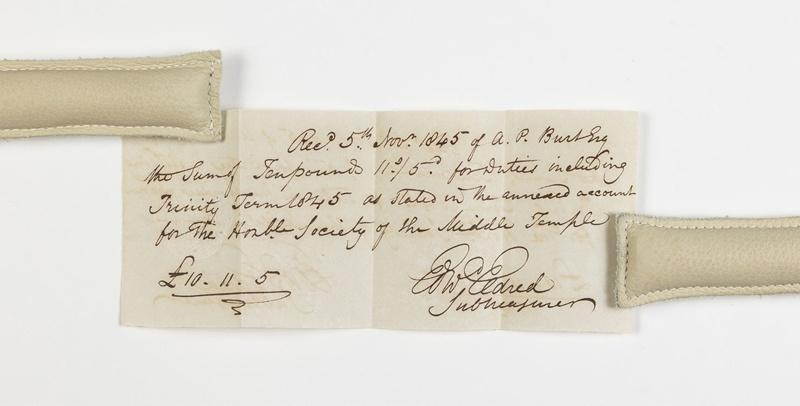 Recd. 5th Novr 1845 of A. P. Burt Esq
the Sum of Ten pounds 11s/5d for Duties including
Trinity Term 1845 as stated in the annexed account
for The Honble Society of the Middle Temple
£10. 11. 5
Edw Eldred
Subtreasurer